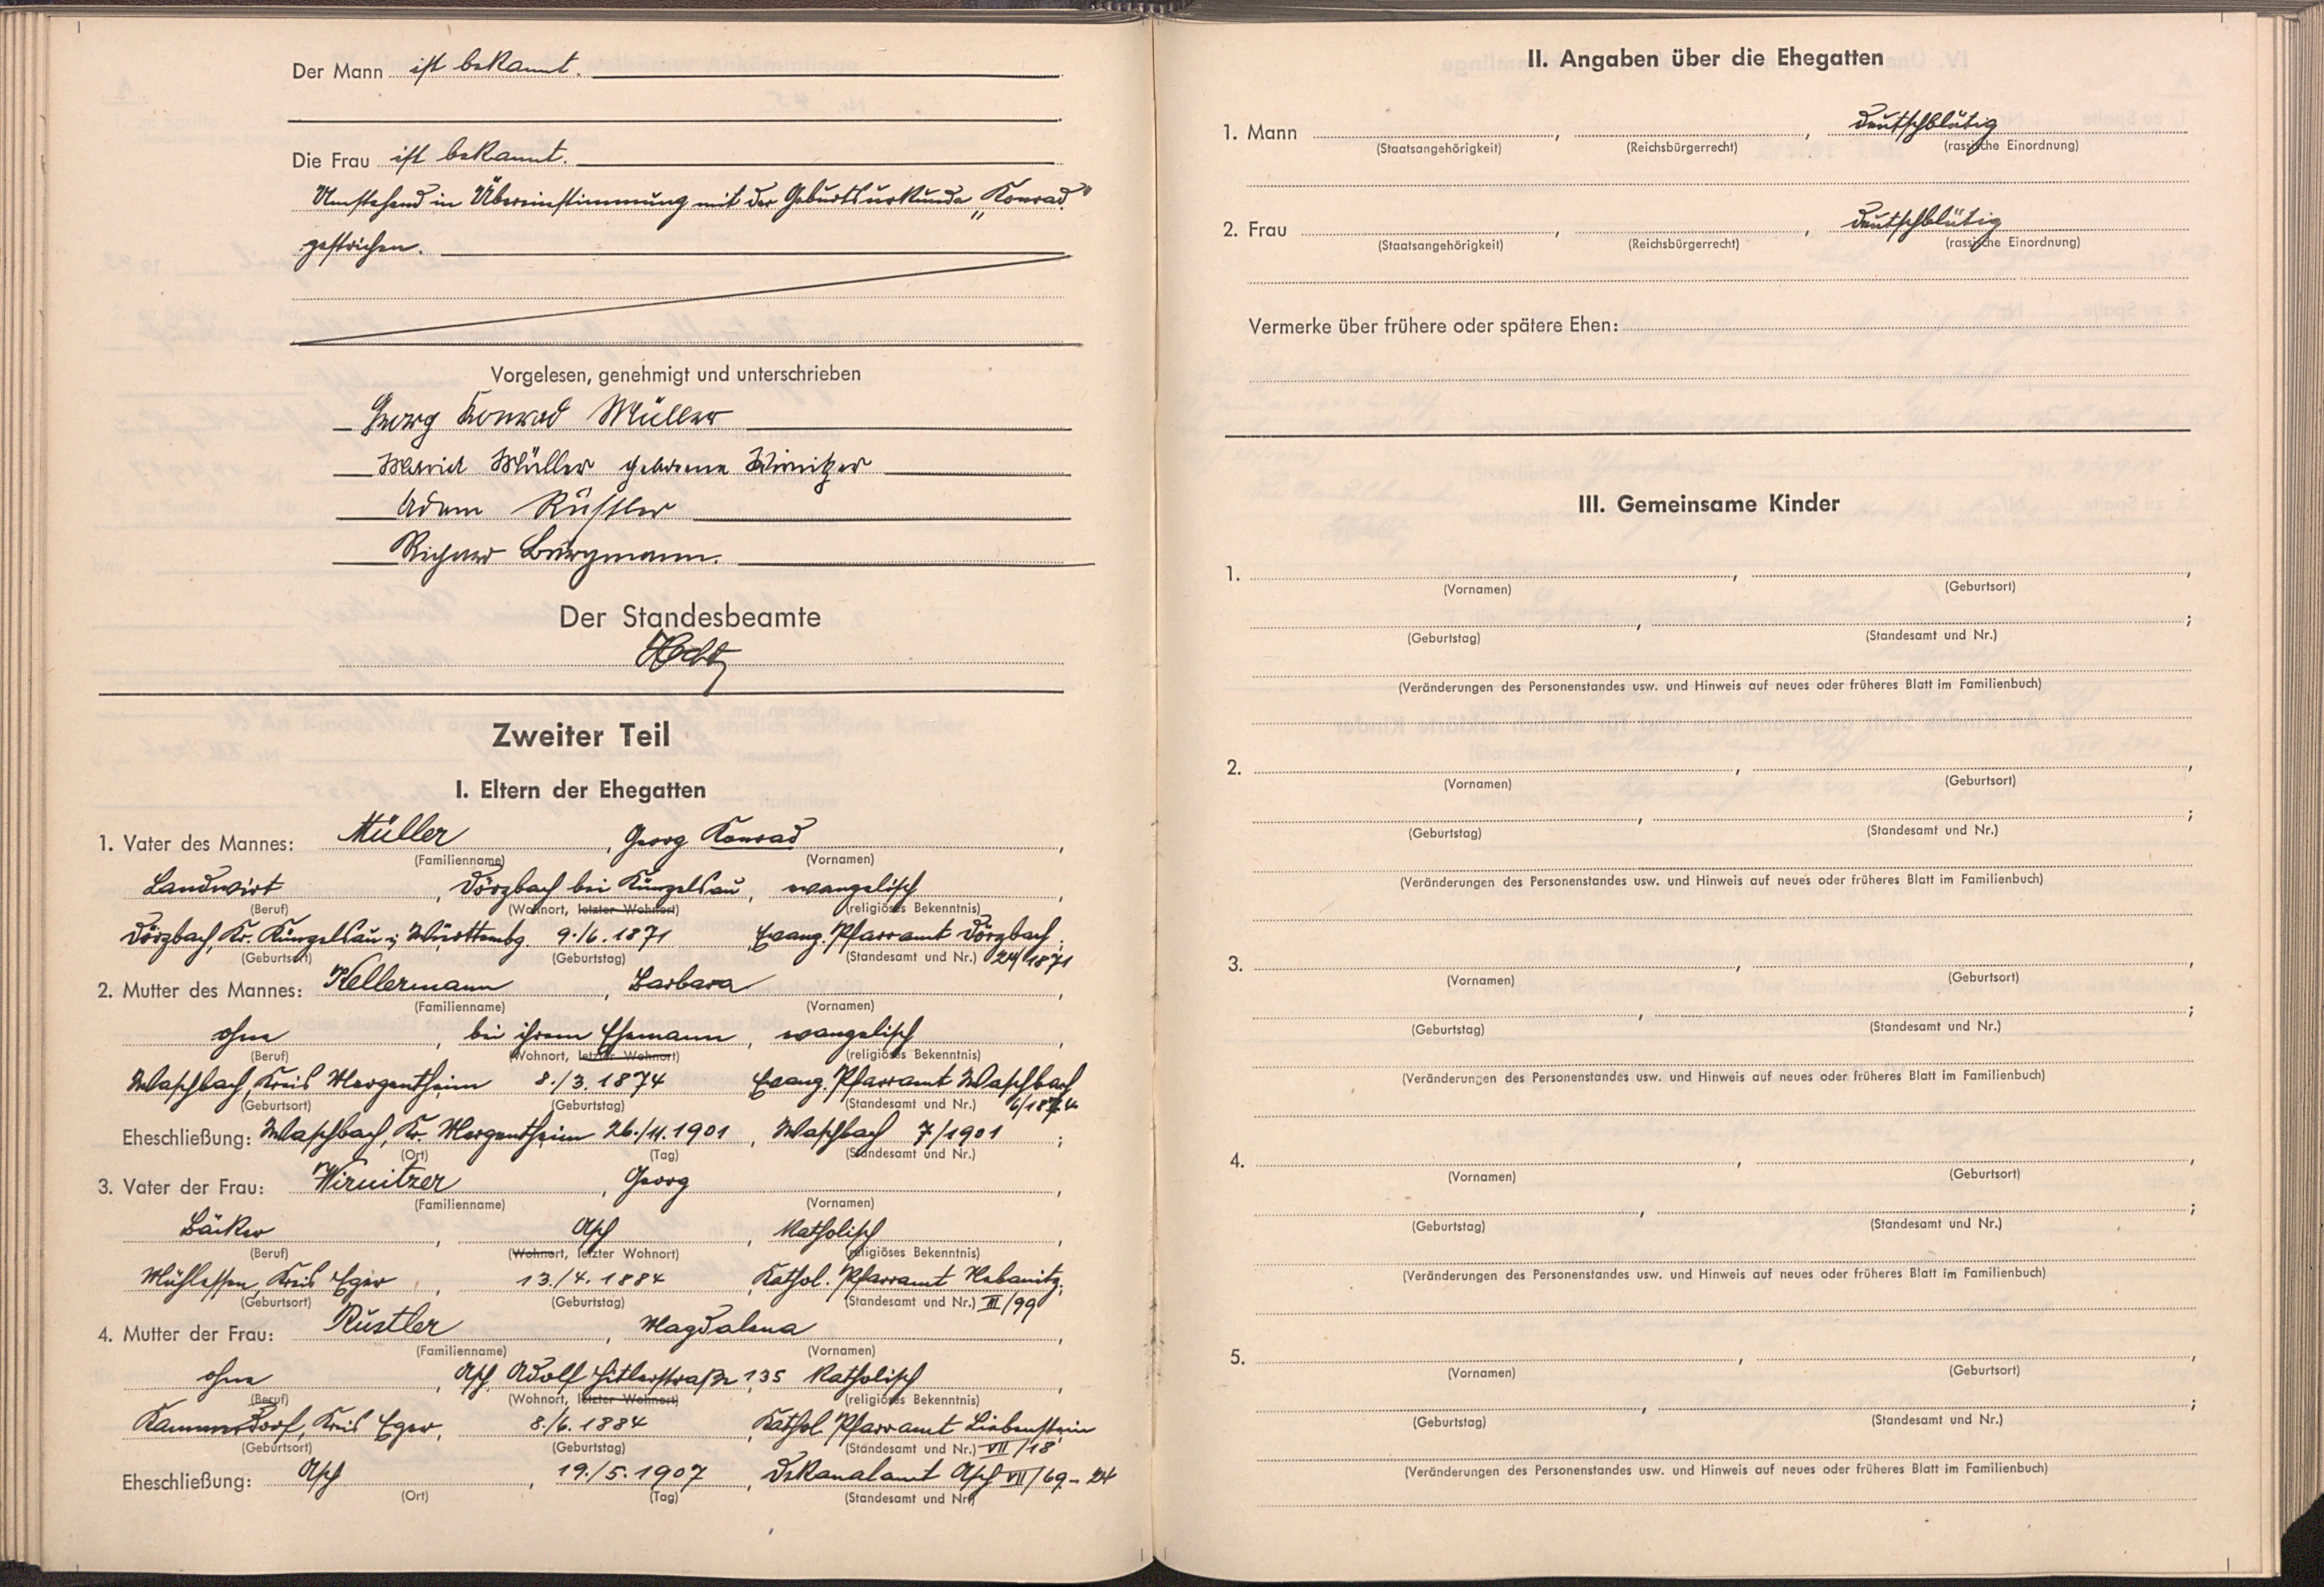 Der Mann ist bekannt.
Die Frau ist bekannt.
Umstehend in Übereinstimmung mit der Geburtsurkunde „Konrad“
gestrichen.
Vorgelesen, genehmigt und unterschrieben
Georg Konrad Müller
Maria Müller geborene Wirnitzer
Adam Rüstler
Richard Bürgmann.
Der Standesbeamte
Zweiter Teil
I. Eltern der Ehegatten
1. Vater des Mannes: Müller, Georg Konrad,
(Familienname) (Vornamen)
Landwirt, Dörzbach bei Künzelsau, evangelisch,
(Beruf) (Wohnort, letzter Wohnort) (religiöses Bekenntnis)
Dörzbach, Kr. Künzelsau i. Württembg. 9./6. 1871 Evang. Pfarramt Dörzbach;
(Geburtsort) (Geburtstag) (Standesamt und Nr.) 24/1871
2. Mutter des Mannes: Kellermann, Barbara,
(Familienname) (Vornamen)
ohne, bei ihrem Ehemann, evangelisch,
(Beruf) (Wohnort, letzter Wohnort) (religiöses Bekenntnis)
Waschbach, Kreis Mergentheim 8./3. 1874 Evang. Pfarramt Waschbach
(Geburtsort) (Geburtstag) (Standesamt und Nr.) 6/1874
Eheschließung: Waschbach, Kr. Mergentheim 26./11. 1901, Waschbach 7/1901;
(Ort) (Tag) (Standesamt und Nr.)
3. Vater der Frau: Wirnitzer, Georg,
(Familienname) (Vornamen)
Bäcker, Asch, katholisch,
(Beruf) (Wohnort, letzter Wohnort) (religiöses Bekenntnis)
Mühlessen, Kreis Eger, 13./4. 1884, Kathol. Pfarramt Nebanitz;
(Geburtsort) (Geburtstag) (Standesamt und Nr.) III/99
4. Mutter der Frau: Rüstler, Magdalena,
(Familienname) (Vornamen)
ohne, Asch, Adolf Hitlerstraße 135 katholisch,
(Beruf) (Wohnort, letzter Wohnort) (religiöses Bekenntnis)
Kammerdorf, Kreis Eger, 8./6. 1884, Kathol. Pfarramt Liebenstein
(Geburtsort) (Geburtstag) (Standesamt und Nr.) VII/18
Eheschließung: Asch, 19./5. 1907, Dekanalamt Asch VII/69-24
(Ort) (Tag) (Standesamt und Nr.)
II. Angaben über die Ehegatten
1. Mann , , deutschblütig
(Staatsangehörigkeit) (Reichsbürgerrecht) (rassische Einordnung)
2. Frau , , deutschblütig
(Staatsangehörigkeit) (Reichsbürgerrecht) (rassische Einordnung)
Vermerke über frühere oder spätere Ehen:
III. Gemeinsame Kinder
1. , ,
(Vornamen) (Geburtsort)
, ;
(Geburtstag) (Standesamt und Nr.)
(Veränderungen des Personenstandes usw. und Hinweis auf neues oder früheres Blatt im Familienbuch)
2. , ,
(Vornamen) (Geburtsort)
, ;
(Geburtstag) (Standesamt und Nr.)
(Veränderungen des Personenstandes usw. und Hinweis auf neues oder früheres Blatt im Familienbuch)
3. , ,
(Vornamen) (Geburtsort)
, ;
(Geburtstag) (Standesamt und Nr.)
(Veränderungen des Personenstandes usw. und Hinweis auf neues oder früheres Blatt im Familienbuch)
4. , ,
(Vornamen) (Geburtsort)
, ;
(Geburtstag) (Standesamt und Nr.)
(Veränderungen des Personenstandes usw. und Hinweis auf neues oder früheres Blatt im Familienbuch)
5. , ,
(Vornamen) (Geburtsort)
, ;
(Geburtstag) (Standesamt und Nr.)
(Veränderungen des Personenstandes usw. und Hinweis auf neues oder früheres Blatt im Familienbuch)